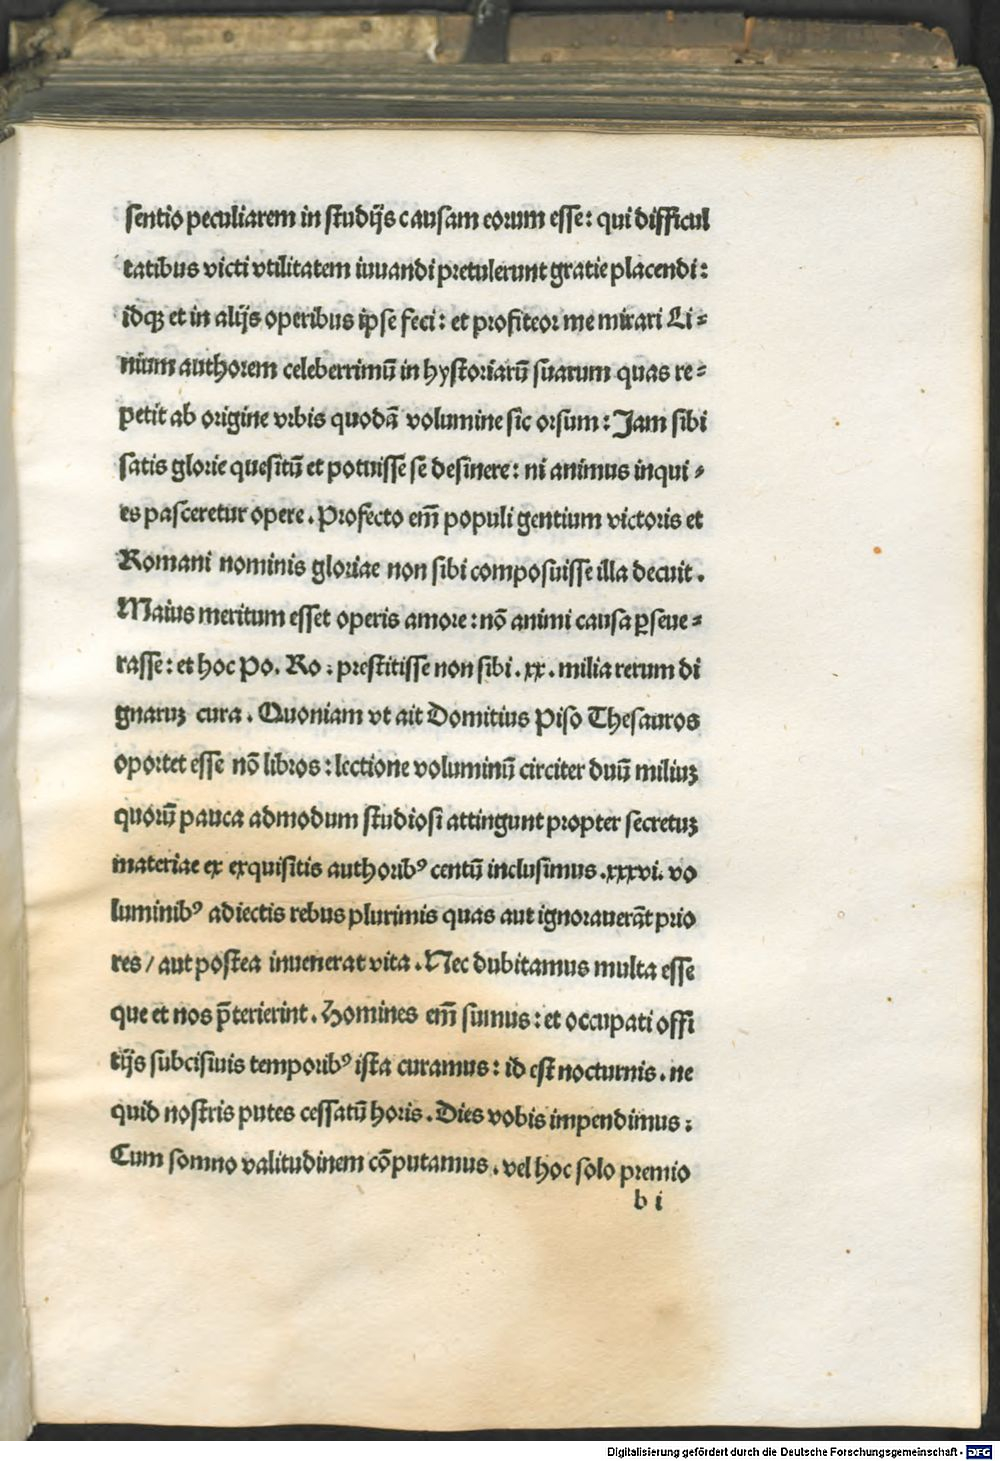 sentio peculiarem in studijs causam eorum esse: qui difficul
tatibus victi vtilitatem iuuandi pretulerunt gratie placendi:
idqꝫ et in alijs operibus ipse feci: et profiteor me mirari Li⸗
nium authorem celeberrimū in hystoriarū suarum quas re⸗
petit ab origine vrbis quodā volumine sic orsum: Jam sibi
satis glorie quesitū et potuisse se desinere: ni animus inqui⸗
es pasceretur opere. Profecto em̄ populi gentium victoris et
Romani nominis gloriae non sibi composuisse illa decuit.
Maius meritum esset operis amore: nō animi causa ꝑseue⸗
rasse: et hoc Po. Ro: prestitisse non sibi. xx. milia rerum di
gnaruꝫ cura. Quoniam vt ait Domitius Piso Thesauros
oportet esse nō libros: lectione voluminū circiter duū miliuꝫ
quorū pauca admodum studiosi attingunt propter secretuꝫ
materiae ex exquisitis authoribꝰ centū inclusimus .xxxvi. vo
luminibꝰ adiectis rebus plurimis quas aut ignorauerāt prio
res / aut postea inuenerat vita. Nec dubitamus multa esse
que et nos p̄terierint. Homines em̄ sumus: et occupati offi
tijs subcisiuis temporibꝰ ista curamus: id est nocturnis. ne
quid nostris putes cessatū horis. Dies vobis impendimus:
Cum somno valitudinem cōputamus. vel hoc solo premio
b i
Digitalisierung gefördert durch die Deutsche Forschungsgemeinschaft - DFG